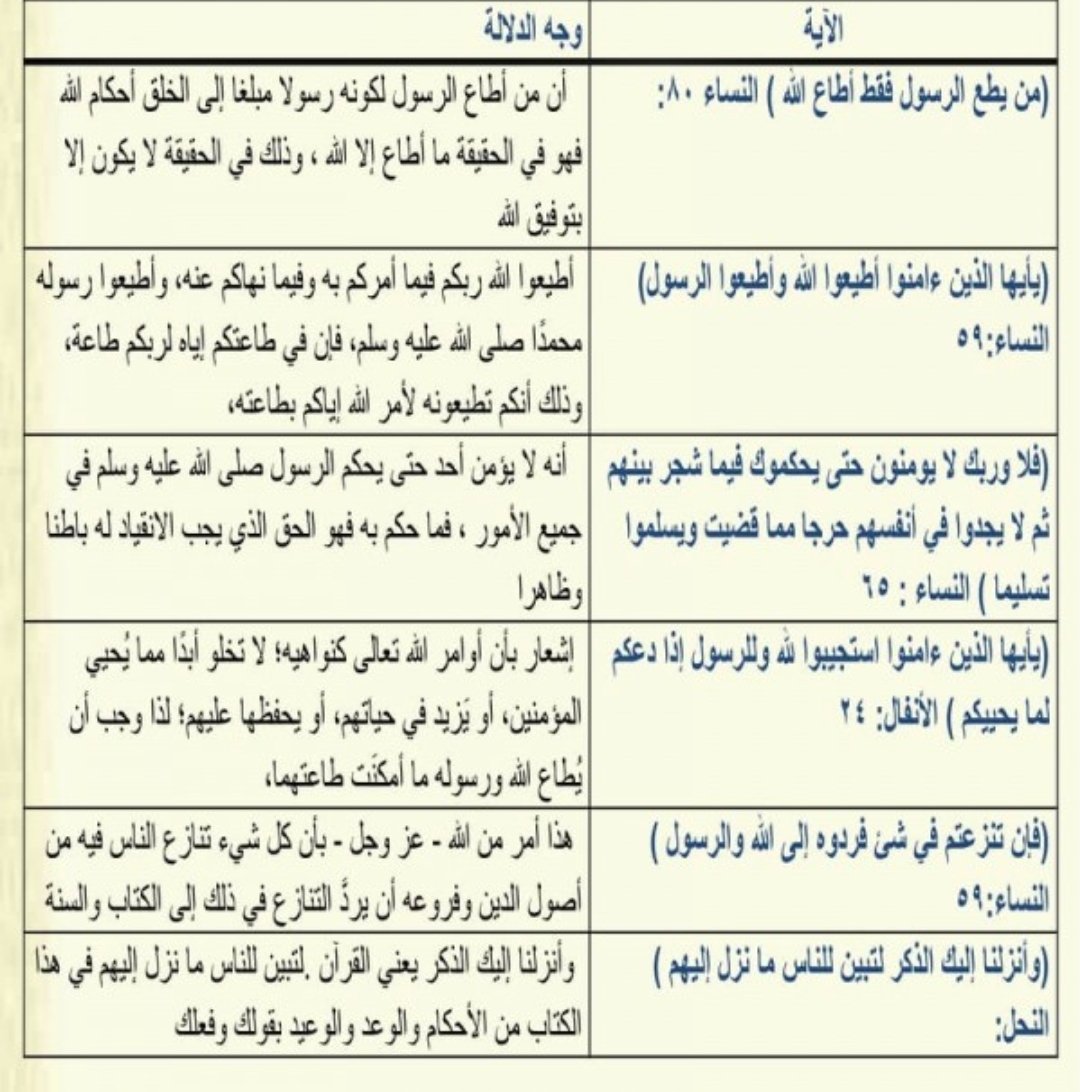 الآية
وجه الدلالة
(من يطع الرسول فقط أطاع الله ) النساء ٨٠:
أن من أطاع الرسول لكونه رسولا مبلغا إلى الخلق أحكام الله
فهو في الحقيقة ما أطاع إلا الله ، وذلك في الحقيقة لا يكون إلا
بتوفيق الله
(يأيها الذين ءامنوا أطيعوا الله وأطيعوا الرسول)
النساء:٥٩
أطيعوا الله ربكم فيما أمركم به وفيما نهاكم عنه، وأطيعوا رسوله
محمدًا صلى الله عليه وسلم، فإن في طاعتكم إياه لربكم طاعة،
وذلك أنكم تطيعونه لأمر الله إياكم بطاعته،
(فلا وربك لا يومنون حتى يحكموك فيما شجر بينهم
ثم لا يجدوا في أنفسهم حرجا مما قضيت ويسلموا
تسليما ) النساء : ٦٥
أنه لا يؤمن أحد حتى يحكم الرسول صلى الله عليه وسلم في
جميع الأمور ، فما حكم به فهو الحق الذي يجب الانقياد له باطنا
وظاهرا
(يأيها الذين ءامنوا استجيبوا لله وللرسول إذا دعكم
لما يحييكم ) الأنفال: ٢٤
إشعار بأن أوامر الله تعالى كنواهيه؛ لا تخلو أبدًا مما يُحيي
المؤمنين، أو يَزيد في حياتهم، أو يحفظها عليهم؛ لذا وجب أن
يُطاع الله ورسوله ما أمكنَت طاعتهما،
(فإن تنزعتم في شئ فردوه إلى الله والرسول )
النساء:٥٩
هذا أمر من الله - عز وجل - بأن كل شيء تنازع الناس فيه من
أصول الدين وفروعه أن يردَّ التنازع في ذلك إلى الكتاب والسنة
(وأنزلنا إليك الذكر لتبين للناس ما نزل إليهم )
النحل:
وأنزلنا إليك الذكر يعني القرآن .لتبين للناس ما نزل إليهم في هذا
الكتاب من الأحكام والوعد والوعيد بقولك وفعلك